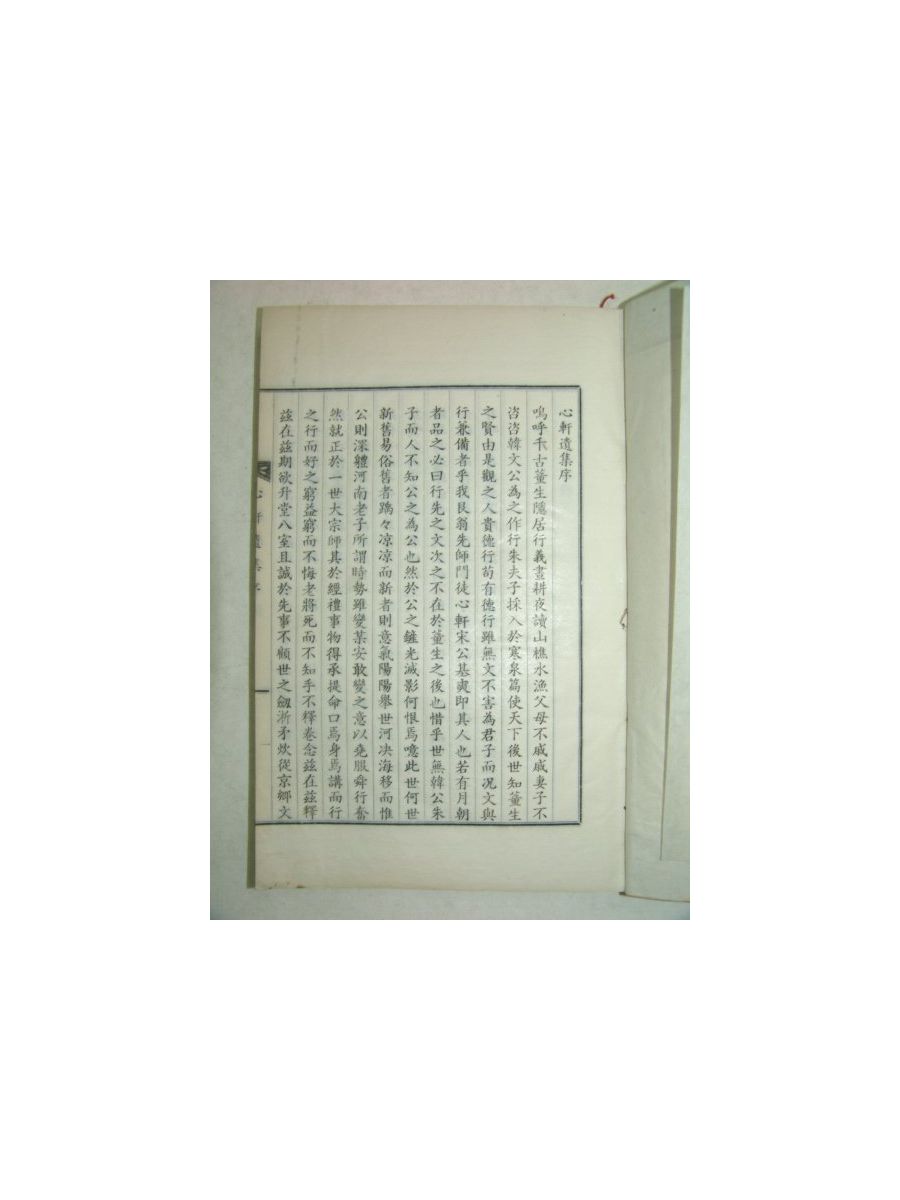 心軒遺集序
嗚呼千古董生隱居行義晝耕夜讀山樵水漁父母不戚戚妻子不
咨咨韓文公為之作行朱夫子採入於寒泉篇使天下後世知董生
之賢由是觀之人貴德行苟有德行雖無文不害為君子而况文與
行兼備者乎我艮翁先師門徒心軒宋公基奭即其人也若有月朝
者品之必曰行先之文次之不在於董生之後也惜乎世無韓公朱
子而人不知公之為公也然於公之鏟光滅影何恨焉噫此世何世
新舊易俗舊者踽々凉凉而新者則意氣陽陽舉世河决海移而惟
公則深軆河南老子所謂時勢雖變某安敢變之意以堯服舜行奮
然就正於一世大宗師其於經禮事物得承提命口焉身焉講而行
之行而好之窮益窮而不悔老將死而不知乎不釋卷念茲在茲釋
茲在茲期欲升堂八室且誠於先事不顧世之劒淅矛炊從京鄉文
心軒遺集序
一